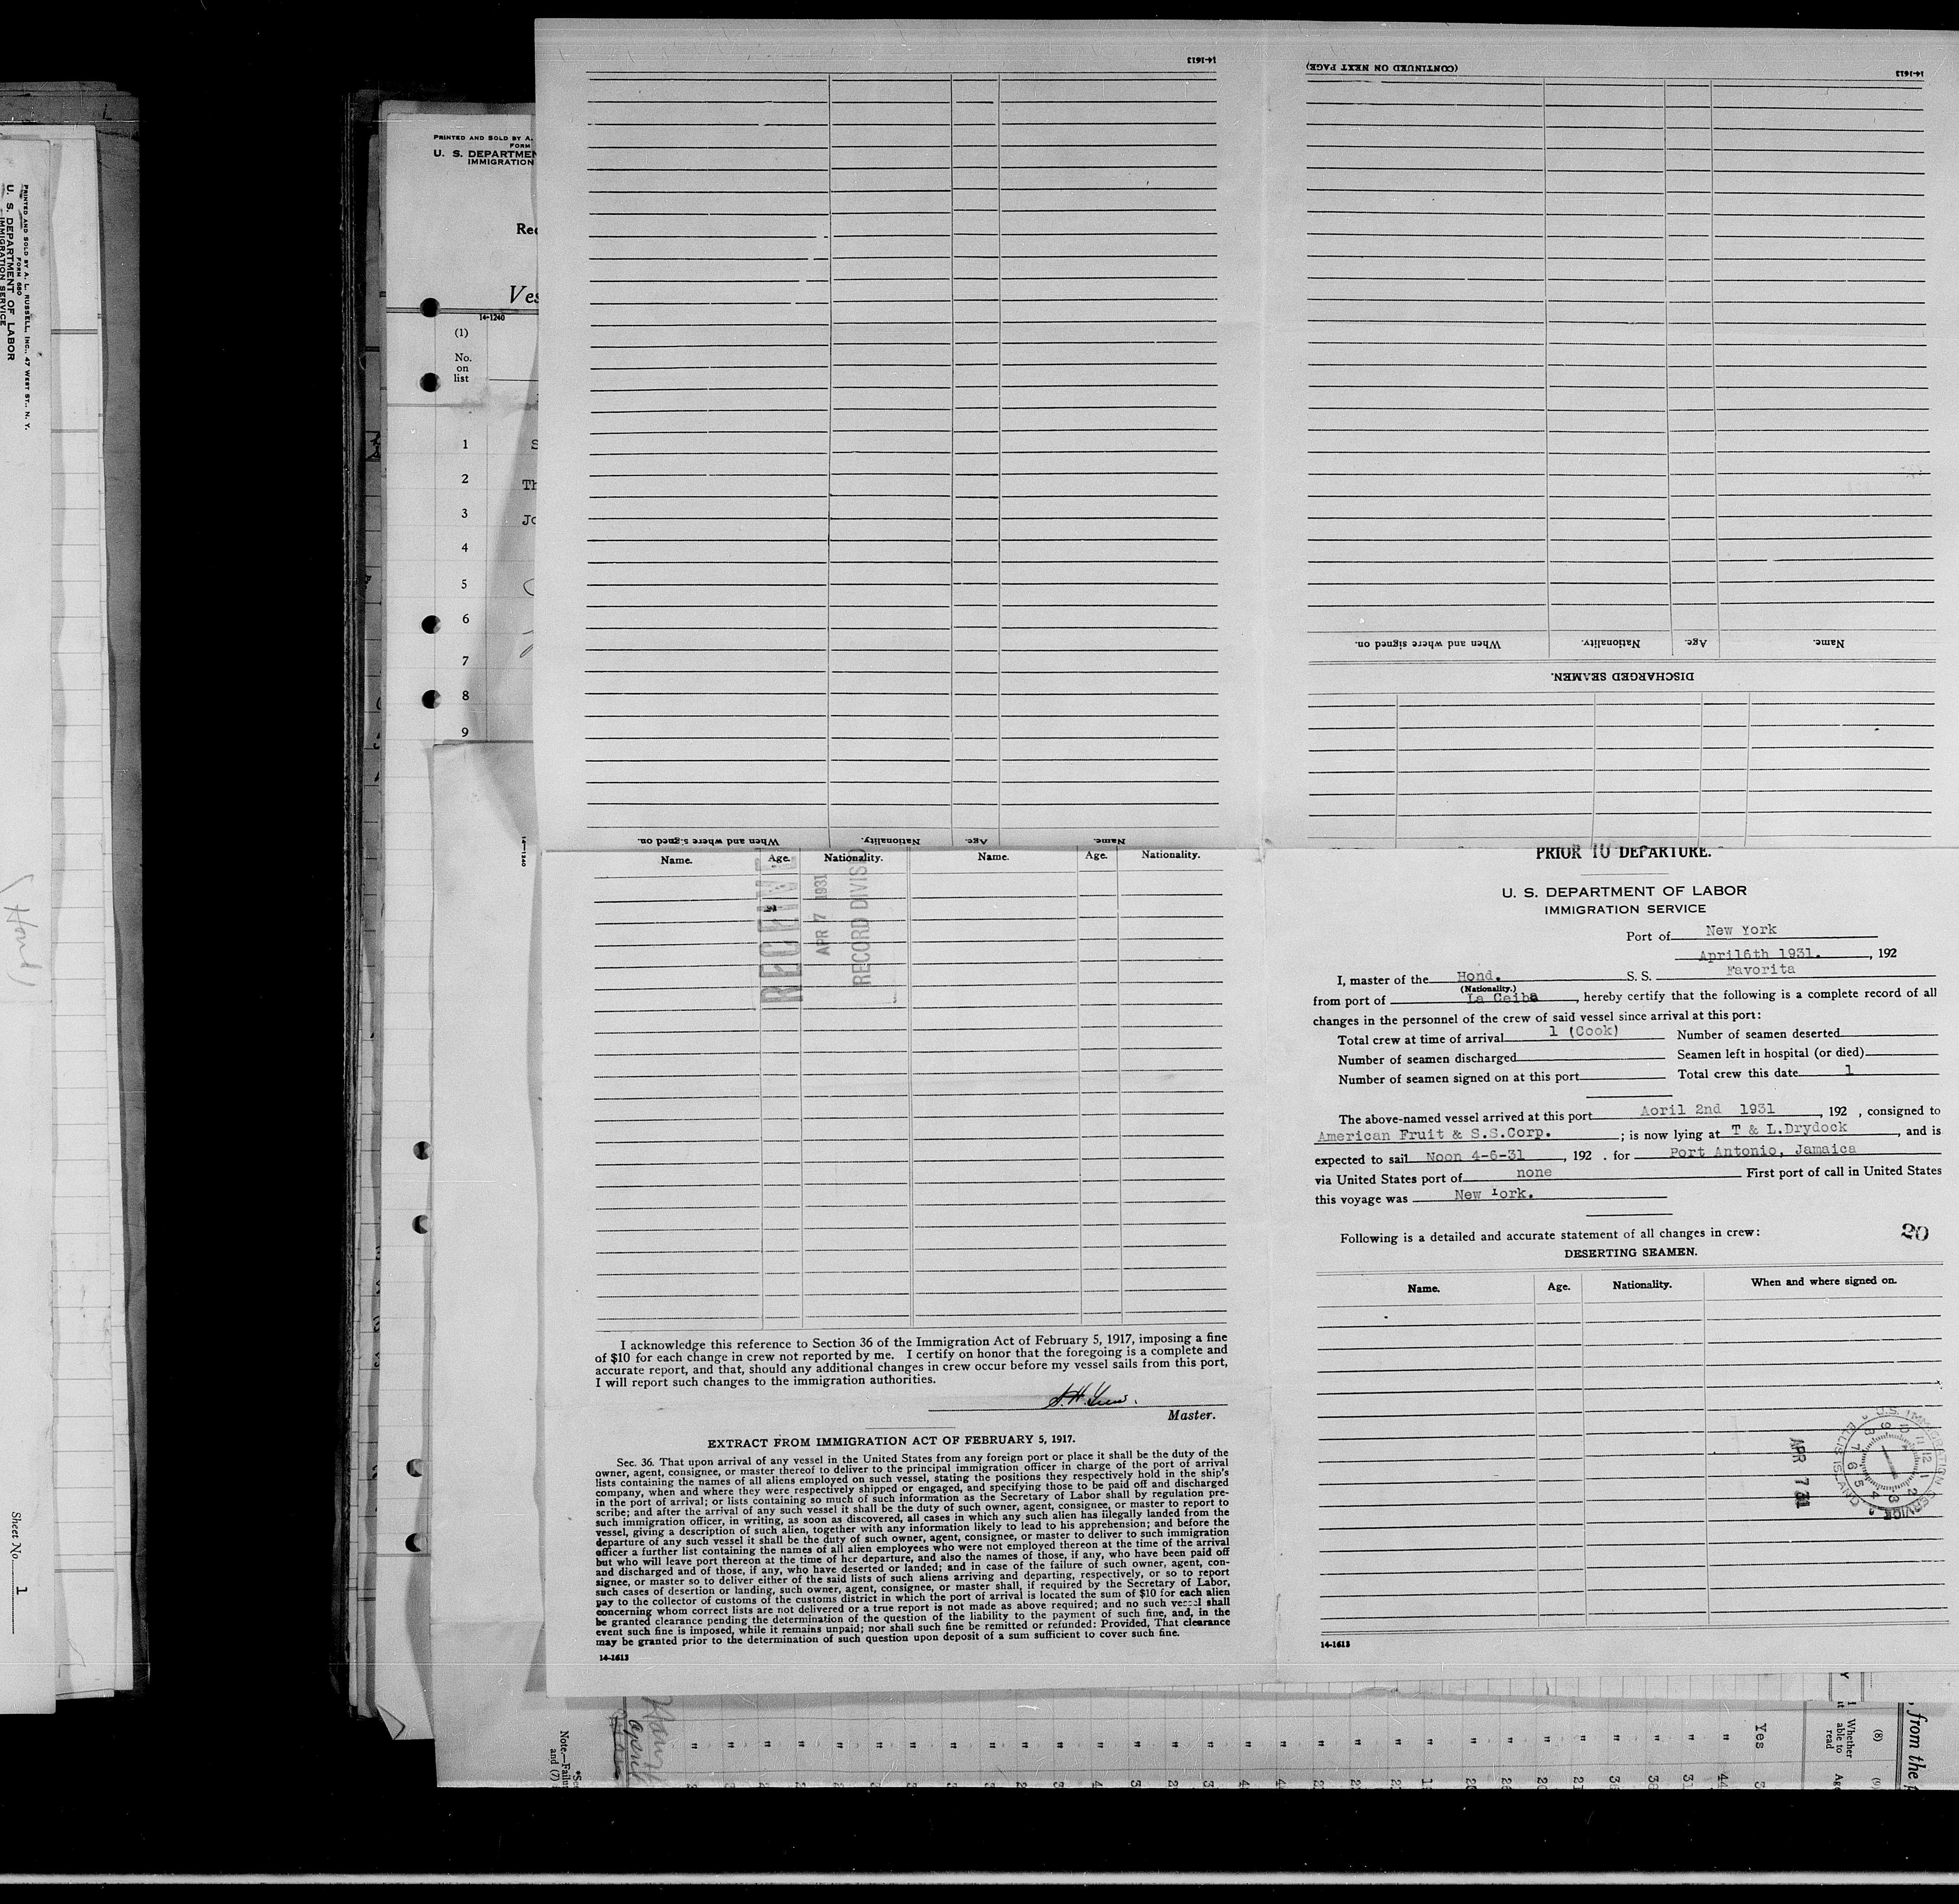 PRINTED AND SOLD BY A. L. RUSSELL, INC., 47 WEST ST., N. Y.
FORM 680
U. S. DEPARTMENT OF LABOR
IMMIGRATION SERVICE
(Hond)
Sheet No. 1
PRINTED AND SOLD BY A.
FORM
U. S. DEPARTMEN
IMMIGRATION
Ves
14-1240
(1)
No.
on
list
1
2
3
4
5
6
7
8
9
14-1240
14-1613
Name.
Age.
Nationality.
When and where signed on.
(CONTINUED ON NEXT PAGE)
14-1613
DISCHARGED SEAMEN.
Name.
Age.
Nationality.
When and where signed on.
Name. Age. Nationality. Name. Age. Nationality.
RECEIVED
APR 7 1931
RECORD DIVISIO
I acknowledge this reference to Section 36 of the Immigration Act of February 5, 1917, imposing a fine
of $10 for each change in crew not reported by me. I certify on honor that the foregoing is a complete and
accurate report, and that, should any additional changes in crew occur before my vessel sails from this port,
I will report such changes to the immigration authorities.
Master.
EXTRACT FROM IMMIGRATION ACT OF FEBRUARY 5, 1917.
Sec. 36. That upon arrival of any vessel in the United States from any foreign port or place it shall be the duty of the
owner, agent, consignee, or master thereof to deliver to the principal immigration officer in charge of the port of arrival
lists containing the names of all aliens employed on such vessel, stating the positions they respectively hold in the ship's
company, when and where they were respectively shipped or engaged, and specifying those to be paid off and discharged
in the port of arrival; or lists containing so much of such information as the Secretary of Labor shall by regulation pre-
scribe; and after the arrival of any such vessel it shall be the duty of such owner, agent, consignee, or master to report to
such immigration officer, in writing, as soon as discovered, all cases in which any such alien has illegally landed from the
vessel, giving a description of such alien, together with any information likely to lead to his apprehension; and before the
departure of any such vessel it shall be the duty of such owner, agent, consignee, or master to deliver to such immigration
officer a further list containing the names of all alien employees who were not employed thereon at the time of the arrival
but who will leave port thereon at the time of her departure, and also the names of those, if any, who have been paid off
and discharged and of those, if any, who have deserted or landed; and in case of the failure of such owner, agent, con-
signee, or master so to deliver either of the said lists of such aliens arriving and departing, respectively, or so to report
such cases of desertion or landing, such owner, agent, consignee, or master shall, if required by the Secretary of Labor,
pay to the collector of customs of the customs district in which the port of arrival is located the sum of $10 for each alien
concerning whom correct lists are not delivered or a true report is not made as above required; and no such vessel shall
be granted clearance pending the determination of the question of the liability to the payment of such fine, and, in the
event such fine is imposed, while it remains unpaid; nor shall such fine be remitted or refunded: Provided, That clearance
may be granted prior to the determination of such question upon deposit of a sum sufficient to cover such fine.
14-1613
PRIOR TO DEPARTURE.
U. S. DEPARTMENT OF LABOR
IMMIGRATION SERVICE
Port of New York
April6th 1931. , 192
I, master of the Hond. S. S. Favorita
(Nationality.)
from port of La Ceiba , hereby certify that the following is a complete record of all
changes in the personnel of the crew of said vessel since arrival at this port:
Total crew at time of arrival 1 (Cook) Number of seamen deserted
Number of seamen discharged Seamen left in hospital (or died)
Number of seamen signed on at this port Total crew this date 1
The above-named vessel arrived at this port Aoril 2nd 1931 , 192 , consigned to
American Fruit & S.S.Corp. ; is now lying at T & L.Drydock , and is
expected to sail Noon 4-6-31 , 192 . for Port Antonio, Jamaica
via United States port of none First port of call in United States
this voyage was New York.
Following is a detailed and accurate statement of all changes in crew:
20
DESERTING SEAMEN.
Name. Age. Nationality. When and where signed on.
APR 7 31
U.S. IMMIGRATION SERVICE
ELLIS ISLAND
14-1613
from the
(8)
Whether
able to
read
Yes
(9)
Note.—Failu
and (7)